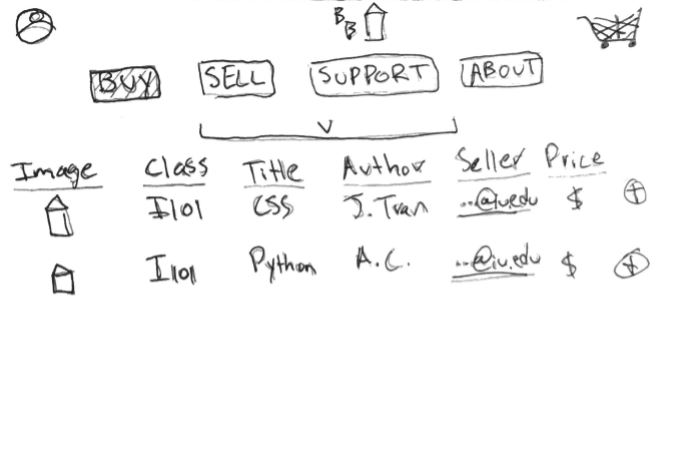 BB
BUY SELL SUPPORT ABOUT
Image Class Title Author Seller Price
I101 CSS J. Tran ..@iu.edu $ +
I101 Python A.C. ..@iu.edu $ +